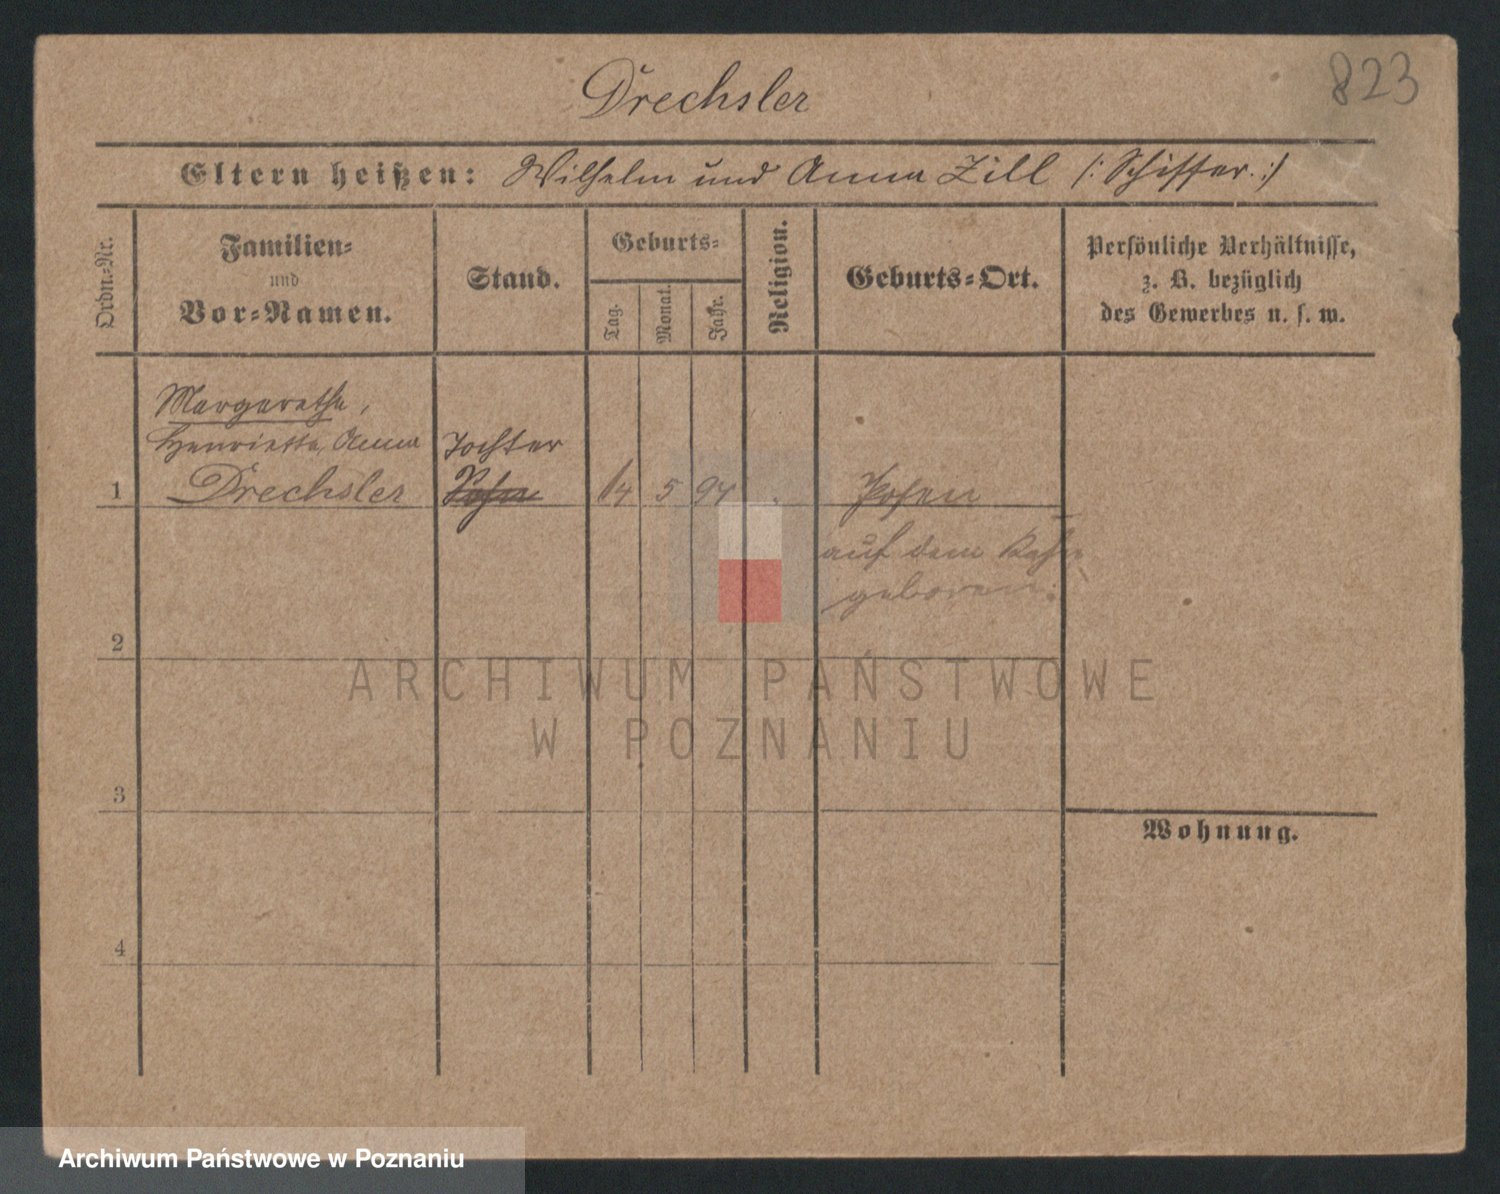 Drechsler
823
Eltern heißen: Wilhelm und Anna Zill /: Schiffer :/
Ordn.-Nr.
Familien-
und
Vor-Namen.
Stand.
Geburts-
Tag.
Monat.
Jahr.
Religion.
Geburts-Ort.
Persönliche Verhältnisse,
z. B. bezüglich
des Gewerbes u. s. w.
Margarethe,
Henriette, Anna
Tochter
1 Drechsler Sohn 14 5 94 Posen
auf dem Kahn
geboren.
2
ARCHIWUM PAŃSTWOWE
W POZNANIU
3
Wohnung.
4
Archiwum Państwowe w Poznaniu